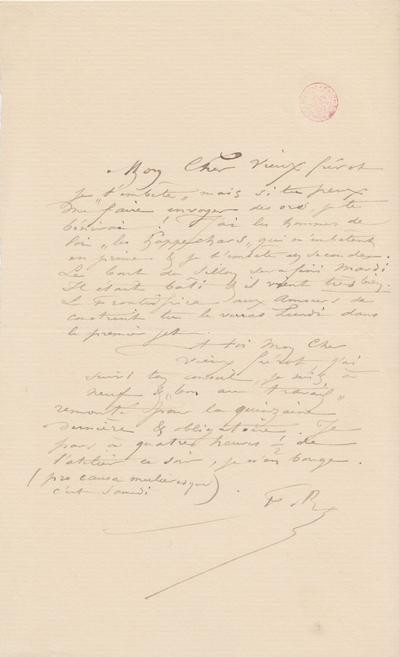 Mon Cher Vieux frérot
Je t'embête, mais si tu peux
me faire envoyer des ors je te
bénirai ! J'ai les hommes de
loi, les "Happechars" qui m'embêtent
en premier & je t'embête en second.
Le Bout de Sillon sera fini Mardi
Il est bâti & il vient très bien.
Le Frontispice aux Amours de
tu le verras Lundi dans
le premier jet.
A toi Mon Cher
Vieux frérot j'ai
suivi ton conseil, je suis à
neuf & "bon au travail"
remonté pour la quinzaine
dernière & obligatoire. Je
pars à quatre heures ! de
l'atelier ce soir, je n'en bouge.
(pro causa
c'est Samedi
F. R.